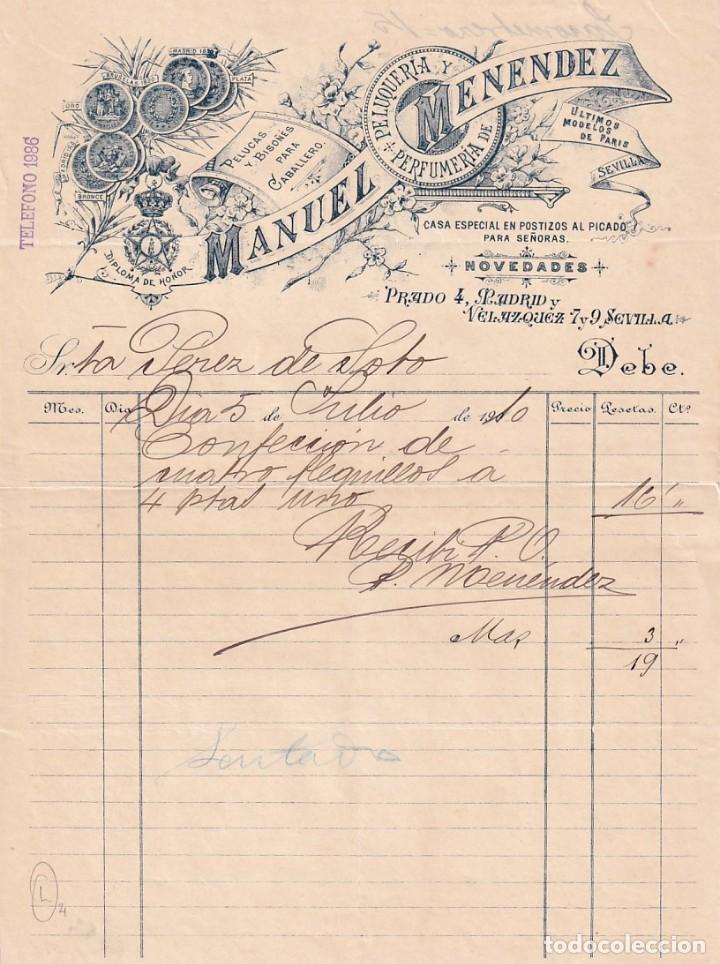 TELEFONO 1986
MADRID
BRUXELAS
PLATA
ORO
MADRID
BRONCE
DIPLOMA DE HONOR
PELUCAS
Y BISOÑES
PARA
CABALLERO.
PELUQUERIA Y
PERFUMERIA DE
MANUEL MENENDEZ
ULTIMOS
MODELOS
DE PARIS
SEVILLA
CASA ESPECIAL EN POSTIZOS AL PICADO
PARA SEÑORAS.
NOVEDADES
PRADO 4, MADRID y
VELAZQUEZ 7 y 9 SEVILLA
Srta Perez de Soto Debe.
Mes. Dia Precio Pesetas. Cts
Dia 5 de Julio de 1910
Confección de
cuatro flequillos á
4 ptas uno 16 "
Recibi P. O.
P. Menéndez
Mas, 3 "
19
Sentado
L
21
todocoleccion
todocoleccion.net